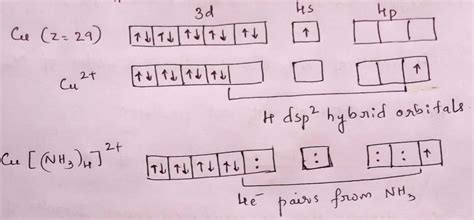 3d 4s 4p
Cu (Z=29) ↑↓ ↑↓ ↑↓ ↑↓ ↑↓ ↑
Cu²⁺ ↑↓ ↑↓ ↑↓ ↑↓ ↑
4 dsp² hybrid orbitals.
Cu [(NH₃)₄]²⁺ ↑↓ ↑↓ ↑↓ ↑↓ : : : : ↑
4e⁻ pairs from NH₃